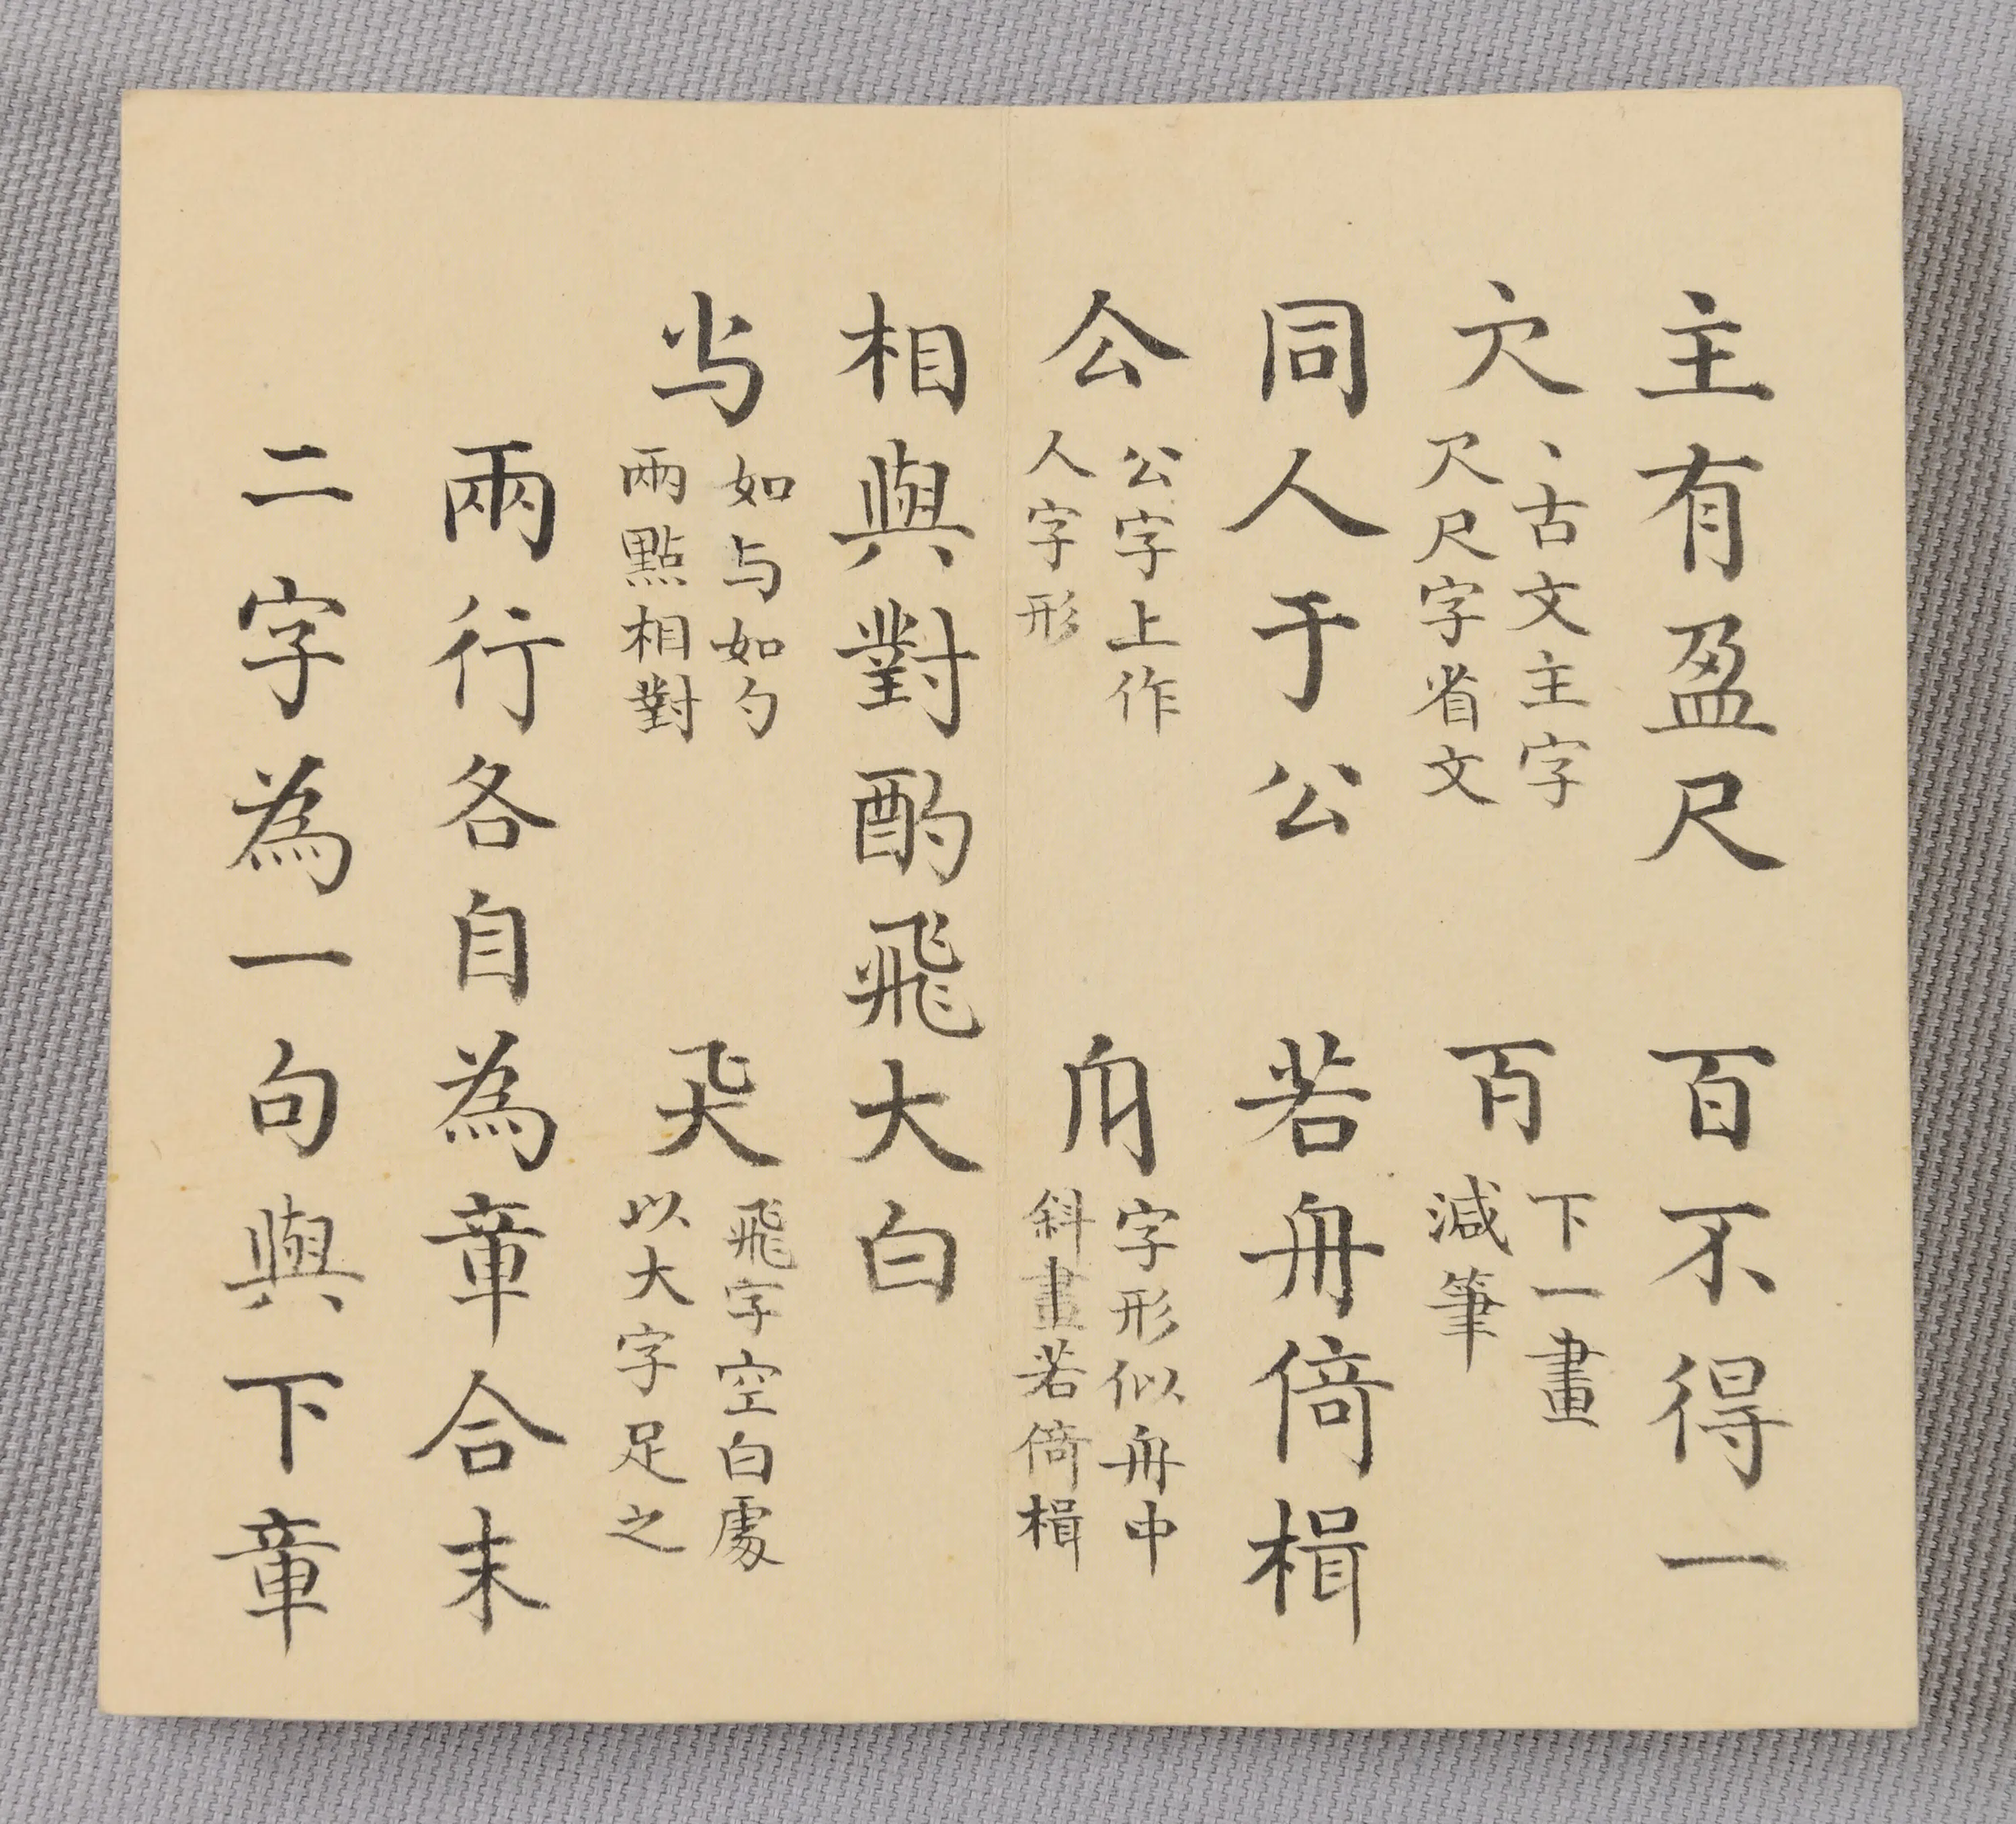 主有盈尺　百不得一
丶古文主字
尺字省文
下一畫
減筆
同人于公　若舟倚楫
公字上作
人字形
字形似舟中
斜畫若倚楫
相與對酌飛大白
如与如勺
兩點相對
飛字空白處
以大字足之
兩行各自為章合末
二字為一句與下章